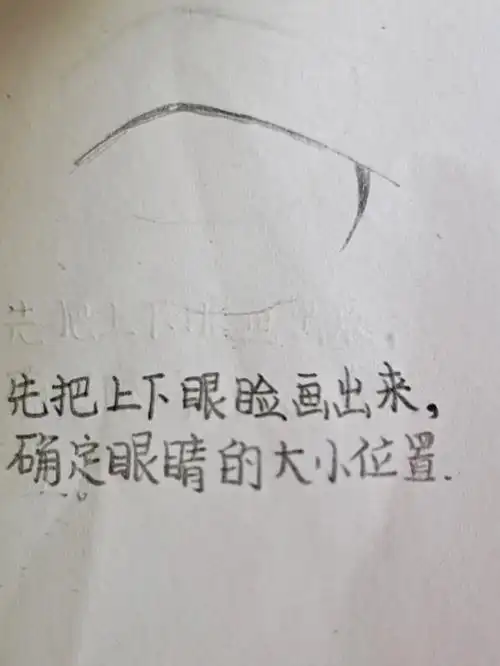 先把上下眼睑画出来，
确定眼睛的大小位置.